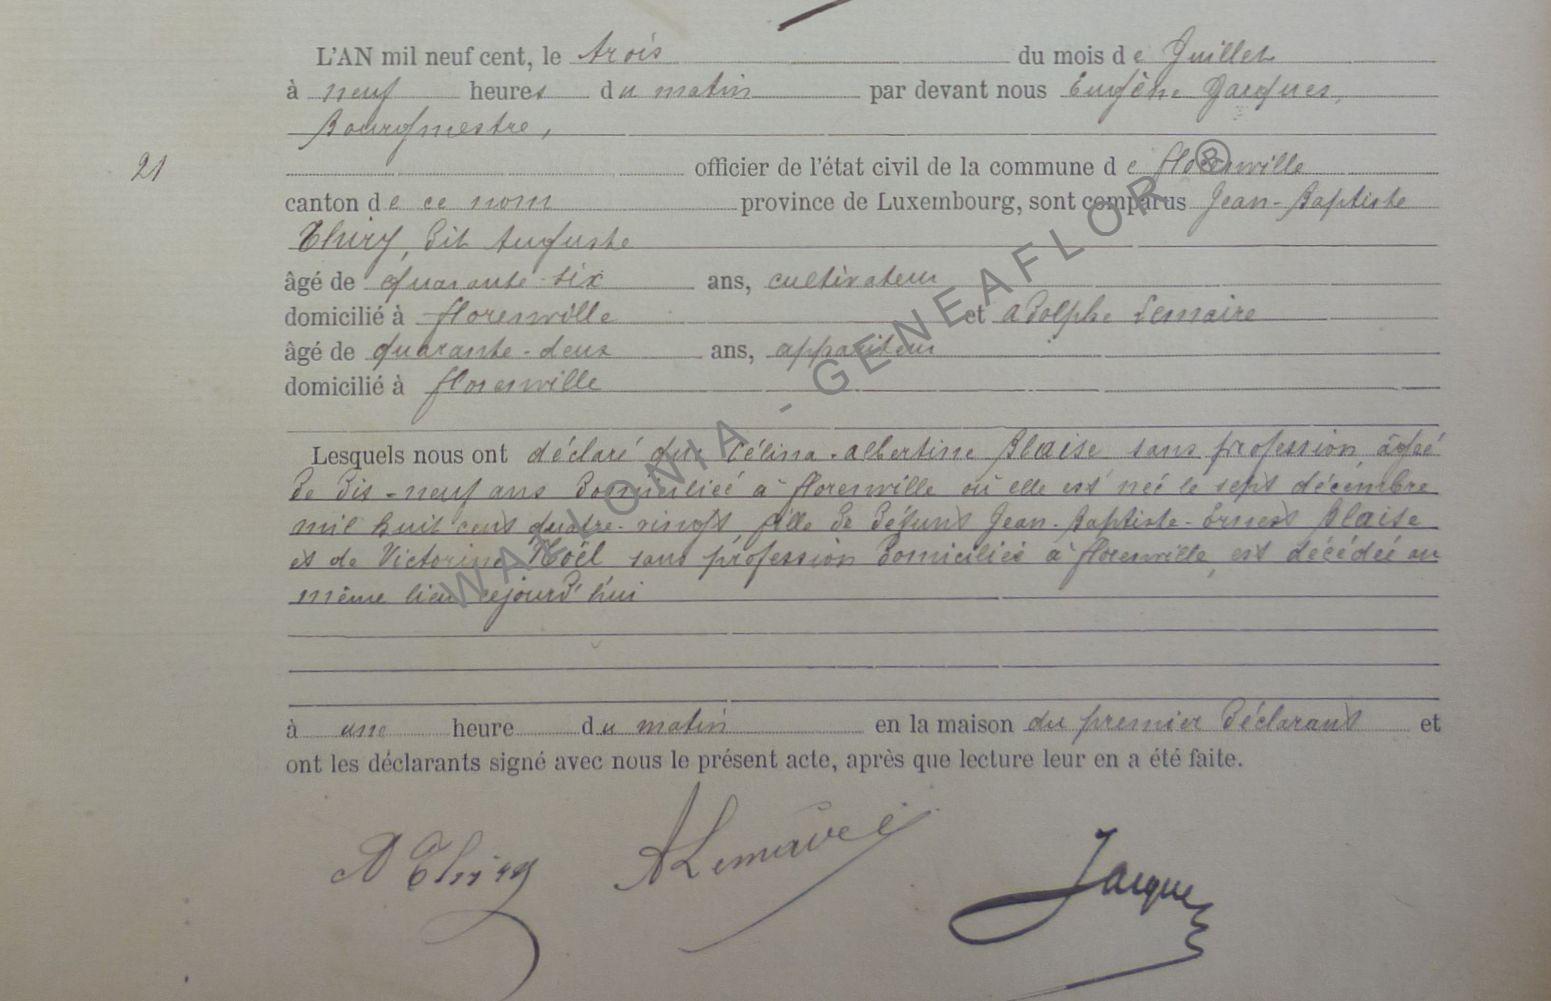 L'AN mil neuf cent, le trois du mois de Juillet
à neuf heures du matin par devant nous Eugène Jacques,
Bourgmestre,
21 officier de l'état civil de la commune de florenville
canton de ce nom province de Luxembourg, sont comparus Jean-Baptiste
Thiry, dit Auguste
âgé de quarante-six ans, cultivateur
domicilié à florenville et adolphe Lemaire
âgé de quarante-deux ans, appariteur
domicilié à florenville
Lesquels nous ont déclaré que Célina-albertine Blaise sans profession âgée
de dix-neuf ans domiciliée à florenville où elle est née le sept décembre
mil huit cent quatre-vingts fille de défunt Jean-Baptiste-Ernest Blaise
et de Victorine Noël sans profession domiciliée à florenville, est décédée au
même lieu cejourd'hui
à une heure du matin en la maison du premier déclarant et
ont les déclarants signé avec nous le présent acte, après que lecture leur en a été faite.
A Thiry ALemaire Jacques
WALLONIA - GENEAFLOR ®